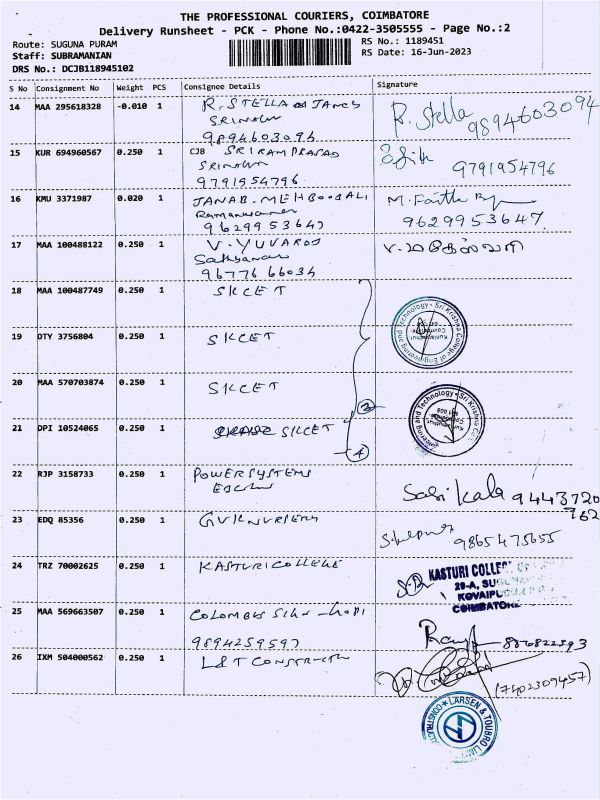 THE PROFESSIONAL COURIERS, COIMBATORE
Delivery Runsheet - PCK - Phone No.:0422-3505555 - Page No.:2
Route: SUGUNA PURAM
RS No.: 1189451
Staff: SUBRAMANIAN
RS Date: 16-Jun-2023
DRS No.: DCJB118945102
S No Consignment No Weight PCS Consignee Details Signature
14 MAA 295618328 -0.010 1 R. STELLA JANCY R. Stella
SRINAGAR 9894603094
9894603094
15 KUR 694960567 0.250 1 CJB SRIRAM PRASAD
SRINAGAR 9791954796
9791954796
16 KMU 3371987 0.020 1 JANAB. MEHBOOBALI M. Faith
9629953647 9629953647
17 MAA 100488122 0.250 1 V. YUVARAJ
9677666034
18 MAA 100487749 0.250 1 SKCET
Sri Krishna College of Engineering and Technology
19 OTY 3756804 0.250 1 SKCET
20 MAA 570703874 0.250 1 SKCET
3
21 DPI 10524065 0.250 1 SKCET
4
22 RJP 3158733 0.250 1 POWER SYSTEMS Sasi Kala 9443720
762
23 EDQ 85356 0.250 1 GVK NURSERY
9865475655
24 TRZ 70002625 0.250 1 KASTURI COLLEGE KASTURI COLLEGE
KOVAIPUDUR
COIMBATORE
25 MAA 569663507 0.250 1 COLOMBUS
9894259597
26 IXM 504000562 0.250 1 L&T CONSTRUCTN
(7402309457)
LARSEN & TOUBRO LIMITED